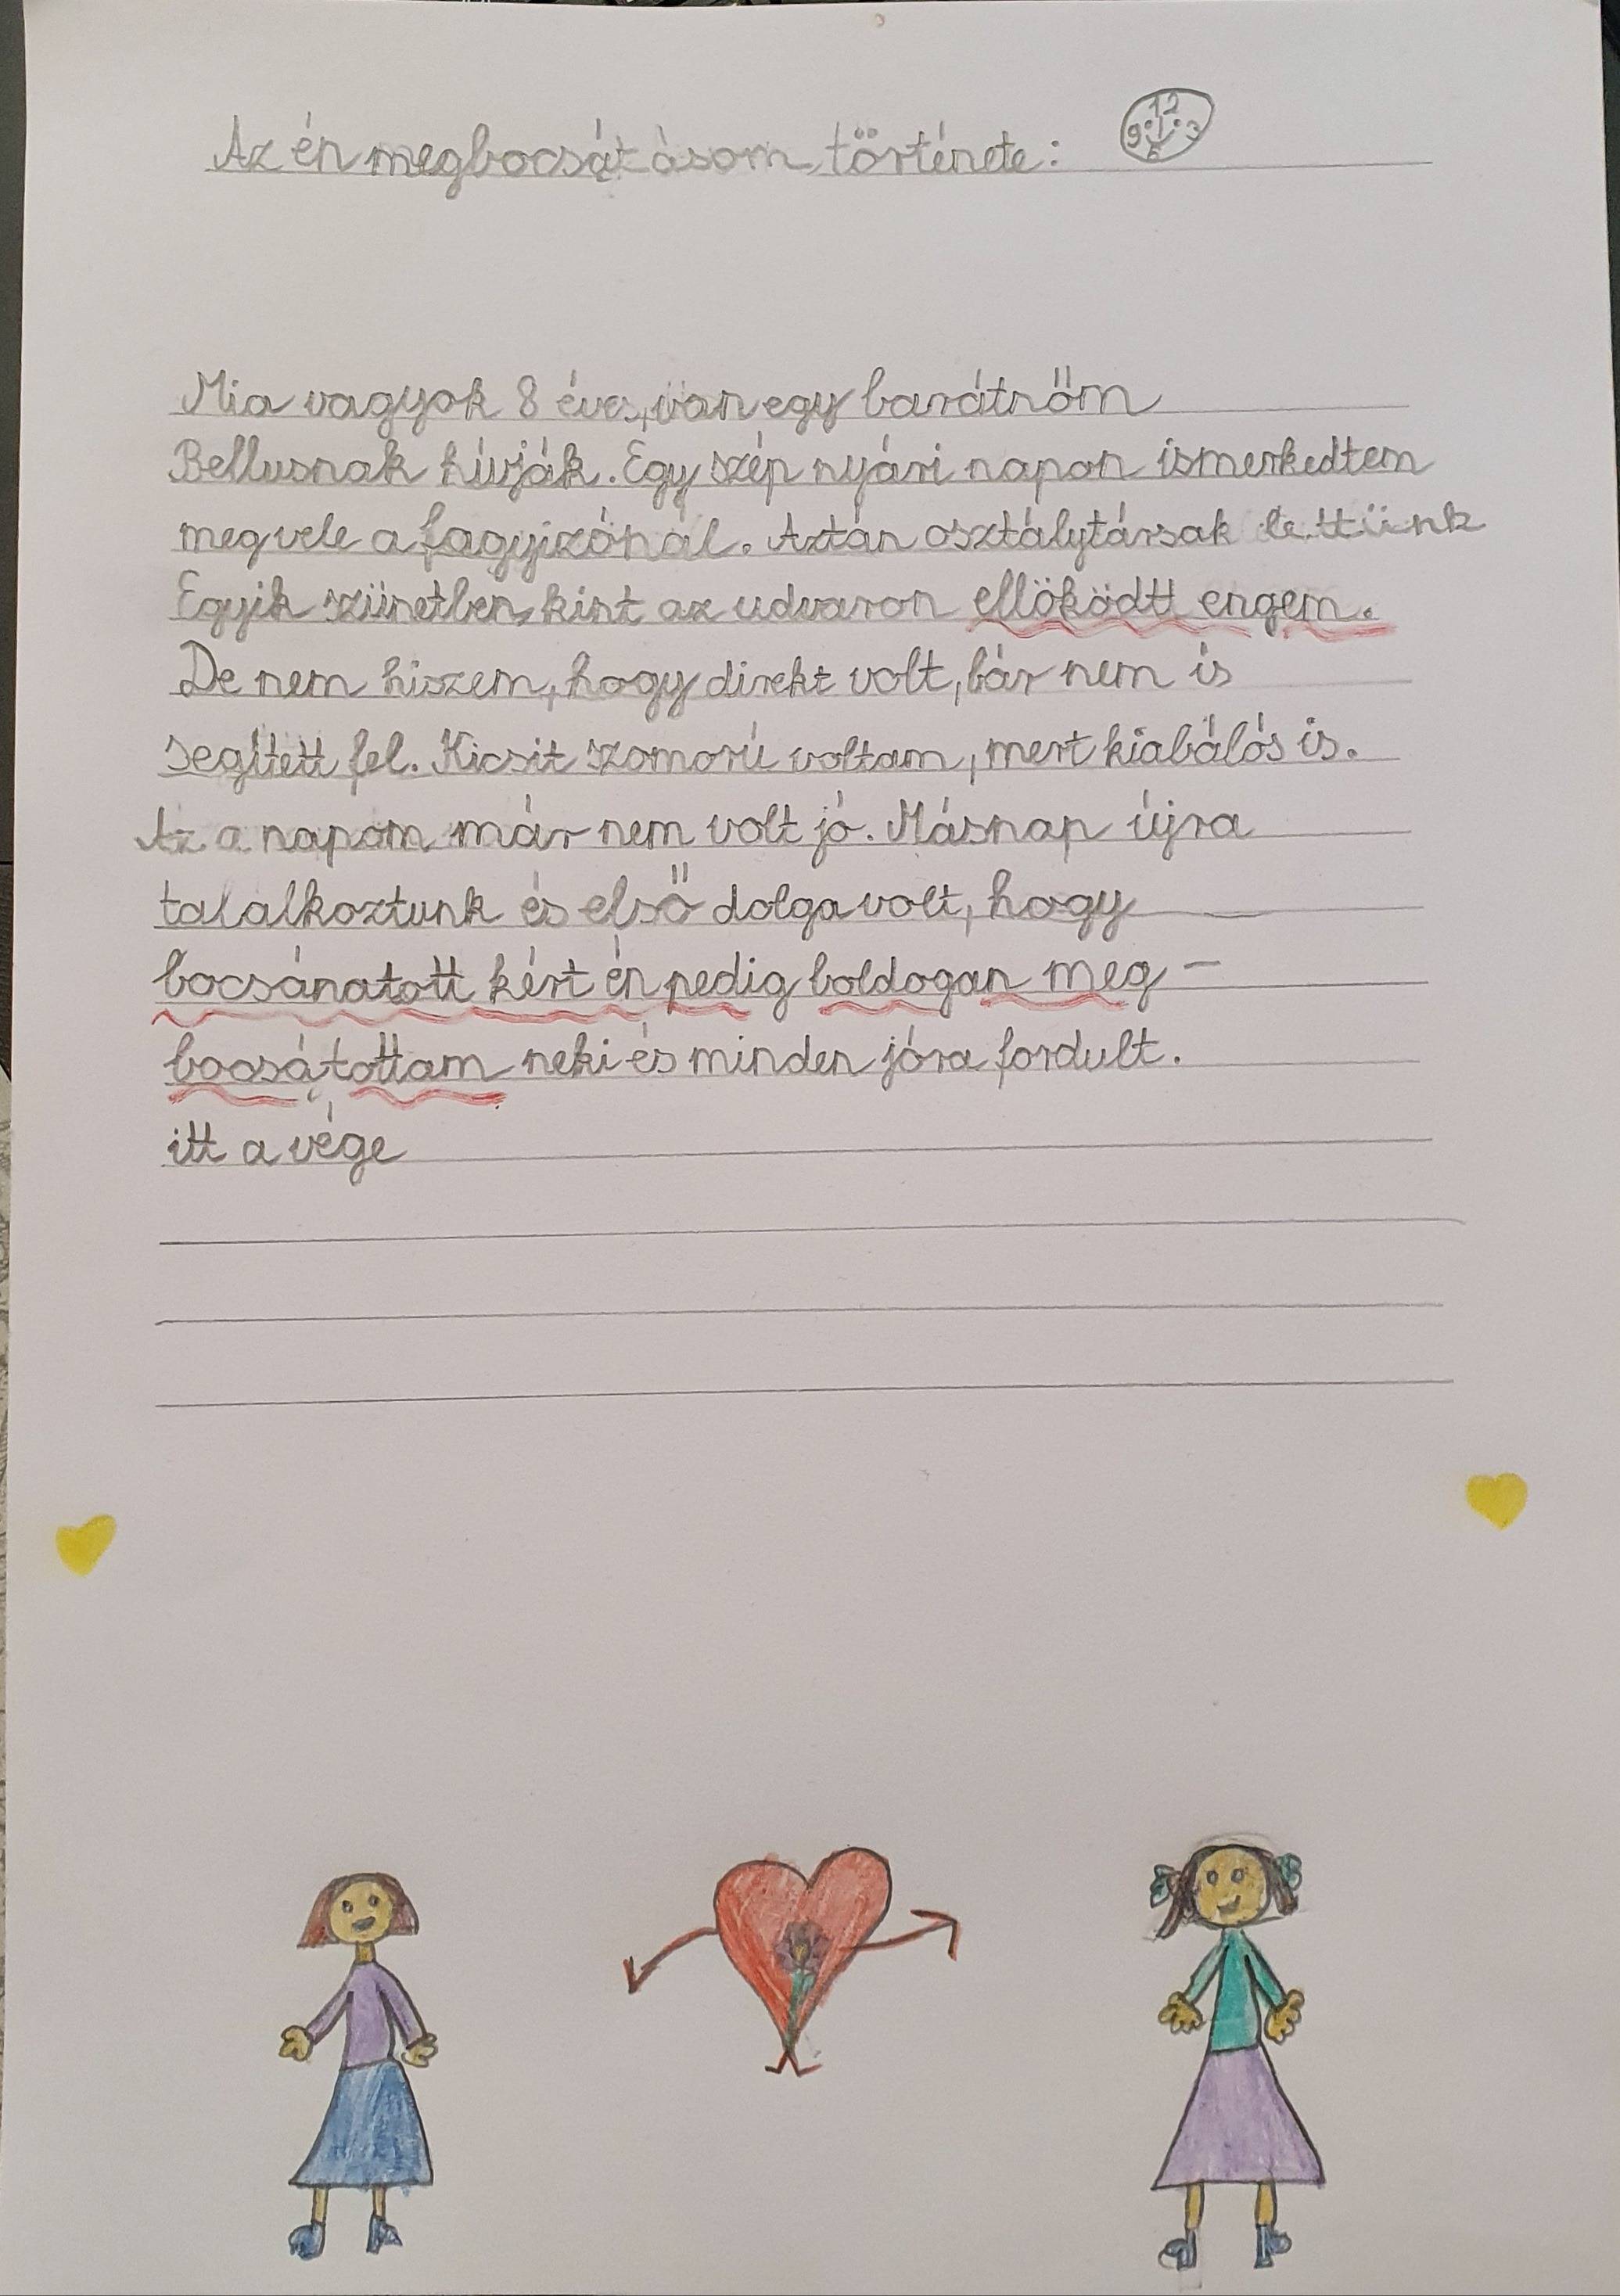 Az én megbocsátásom története:
12
9 3
6
Mia vagyok 8 éves, van egy barátnőm
Bellusnak hívják. Egy szép nyári napon ismerkedtem
meg vele a fagyizónál. Aztán osztálytársak lettünk
Egyik szünetben, kint az udvaron ellöködtt engem.
De nem hiszem, hogy direkt volt, bár nem is
segített fel. Kicsit szomorú voltam, mert kiabálós is.
Az a napom már nem volt jó. Másnap újra
talalkoztunk és első dolga volt, hogy
bocsánatott kért én pedig boldogan meg-
bocsátottam neki és minden jóra fordult.
itt a vége